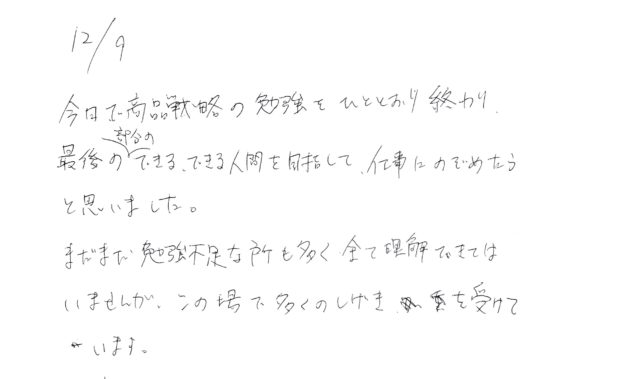 12/9
今日で商品戦略の勉強をひととおり終わり、
最後の部分のできる、できる人間を目指して、仕事にのぞめたら
と思いました。
まだまだ勉強不足な所も多く全て理解できては
いませんが、この場で多くのしげきを受けて
います。